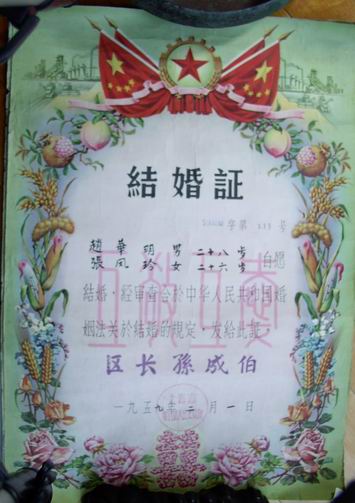 結婚証
字第 號
趙華明 男 二十八岁
張凤玲 女 二十六岁 自愿
結婚,経審查合於中华人民共和国婚
姻法关於結婚的規定,发給此証
区长 孫成伯
一九五九年二月一日